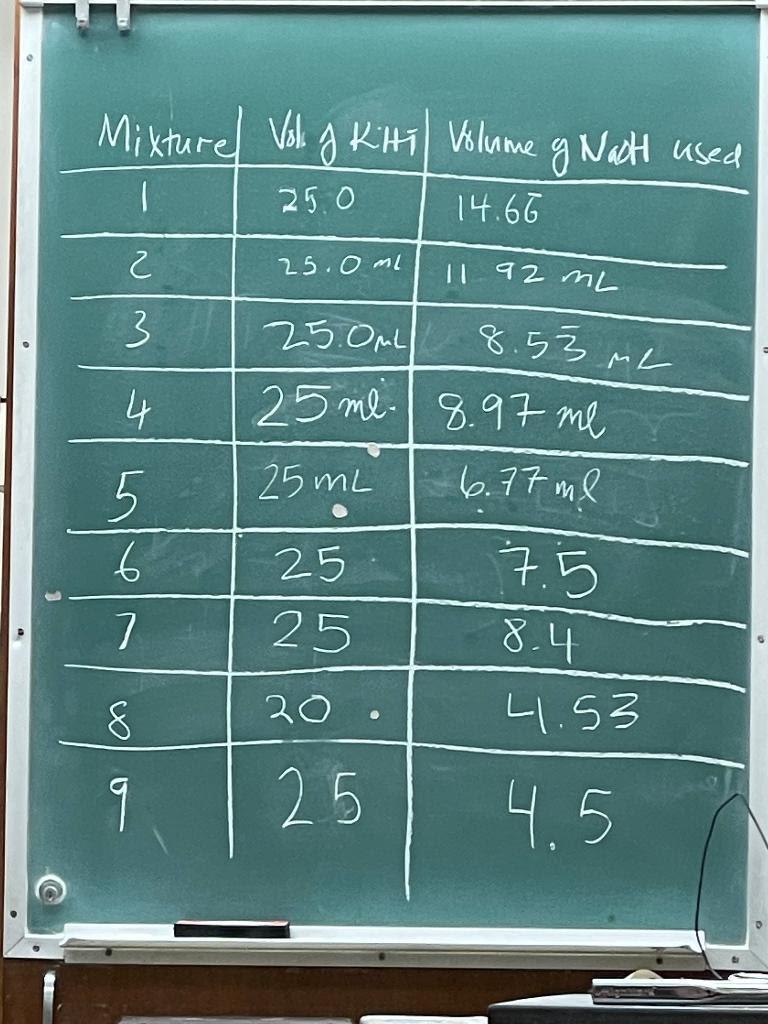 Mixture Vol. of KHT Volume of NaOH used
1 25.0 14.66
2 25.0 ml 11.92 mL
3 25.0mL 8.53 mL
4 25 ml. 8.97 ml
5 25mL 6.77 ml
6 25 7.5
7 25 8.4
8 20 4.53
9 25 4.5